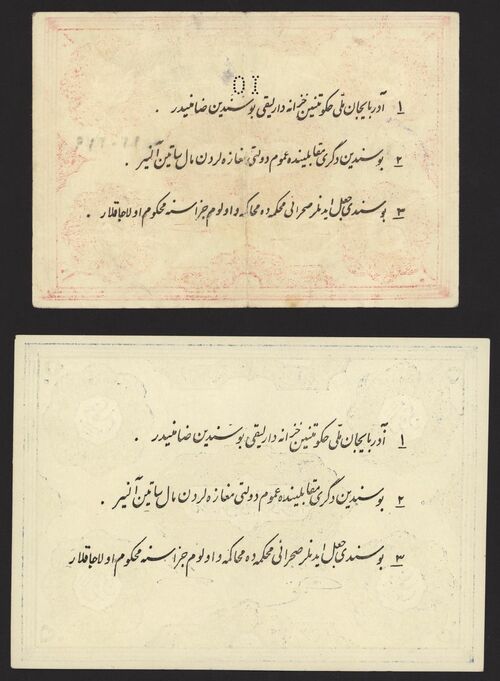 10
۱ آذربایجان ملّی حکومتنین خزانه دارلیقی بوسندین ضامنیدیر .
۲ بوسندین دگری مقابلینده عموم دولتی مغازه لردن مال ساتین آلنیر .
۳ بوسندی جعل ایدنلر صحرائی محکمه ده محاکمه و اولوم جزاسنه محکوم اولاجاقلار .
۱ آذربایجان ملّی حکومتنین خزانه دارلیقی بوسندین ضامنیدیر .
۲ بوسندین دگری مقابلینده عموم دولتی مغازه لردن مال ساتین آلنیر .
۳ بوسندی جعل ایدنلر صحرائی محکمه ده محاکمه و اولوم جزاسنه محکوم اولاجاقلار